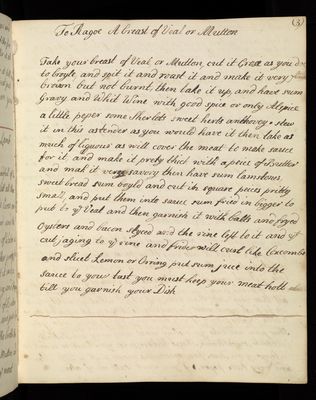 (3)
To Ragoe A breast of Veal or Mutton
Take your breast of Veal or Mutton, cut it Cross as you do
to broyle and spit it and roast it and make it very
brown but not burnt, then take it up, and have sum
Gravy and Whit Wine with good spice or only Alspice
a little peper some Sherlots sweet herbs anthovey. stew
it in this as tender as you would have it then take as
much of liquour as will cover the meat to make sauce
for it, and make it prety thick with a peice of Butter
and mak it very savory then have sum Lamstones
sweet bread sum boyld and cut in square peices pretty
small, and put them into sauce sum fried in bigger to
put to ye Veal and then garnish it with balls and fryed
Oysters and bacon slyced and the rine left to it and
cut jaging to ye rine and fride will curl like Coxcombs
and sliced Lemon or Orring put sum juce into the
sauce to your tast you must keep your meat hott
till you garnish your Dish